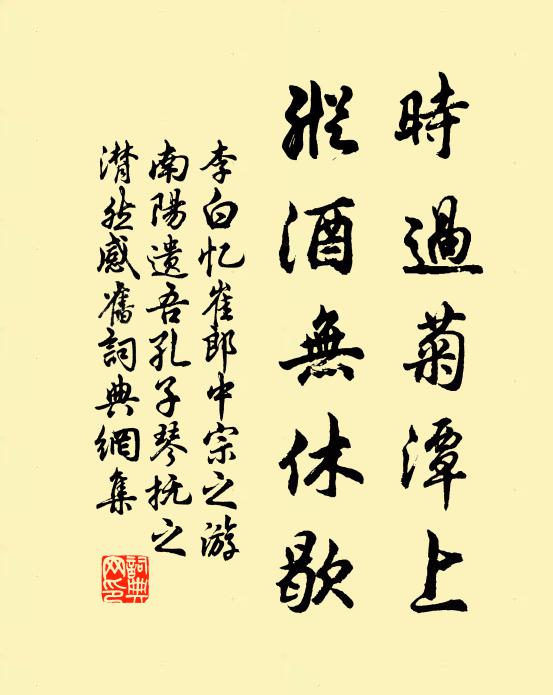 時過菊潭上
縱酒無休歇
李白忆崔郎中宗之游
南陽遗吾孔子琴抚之
潸然感舊詞典網集
詞典
网印